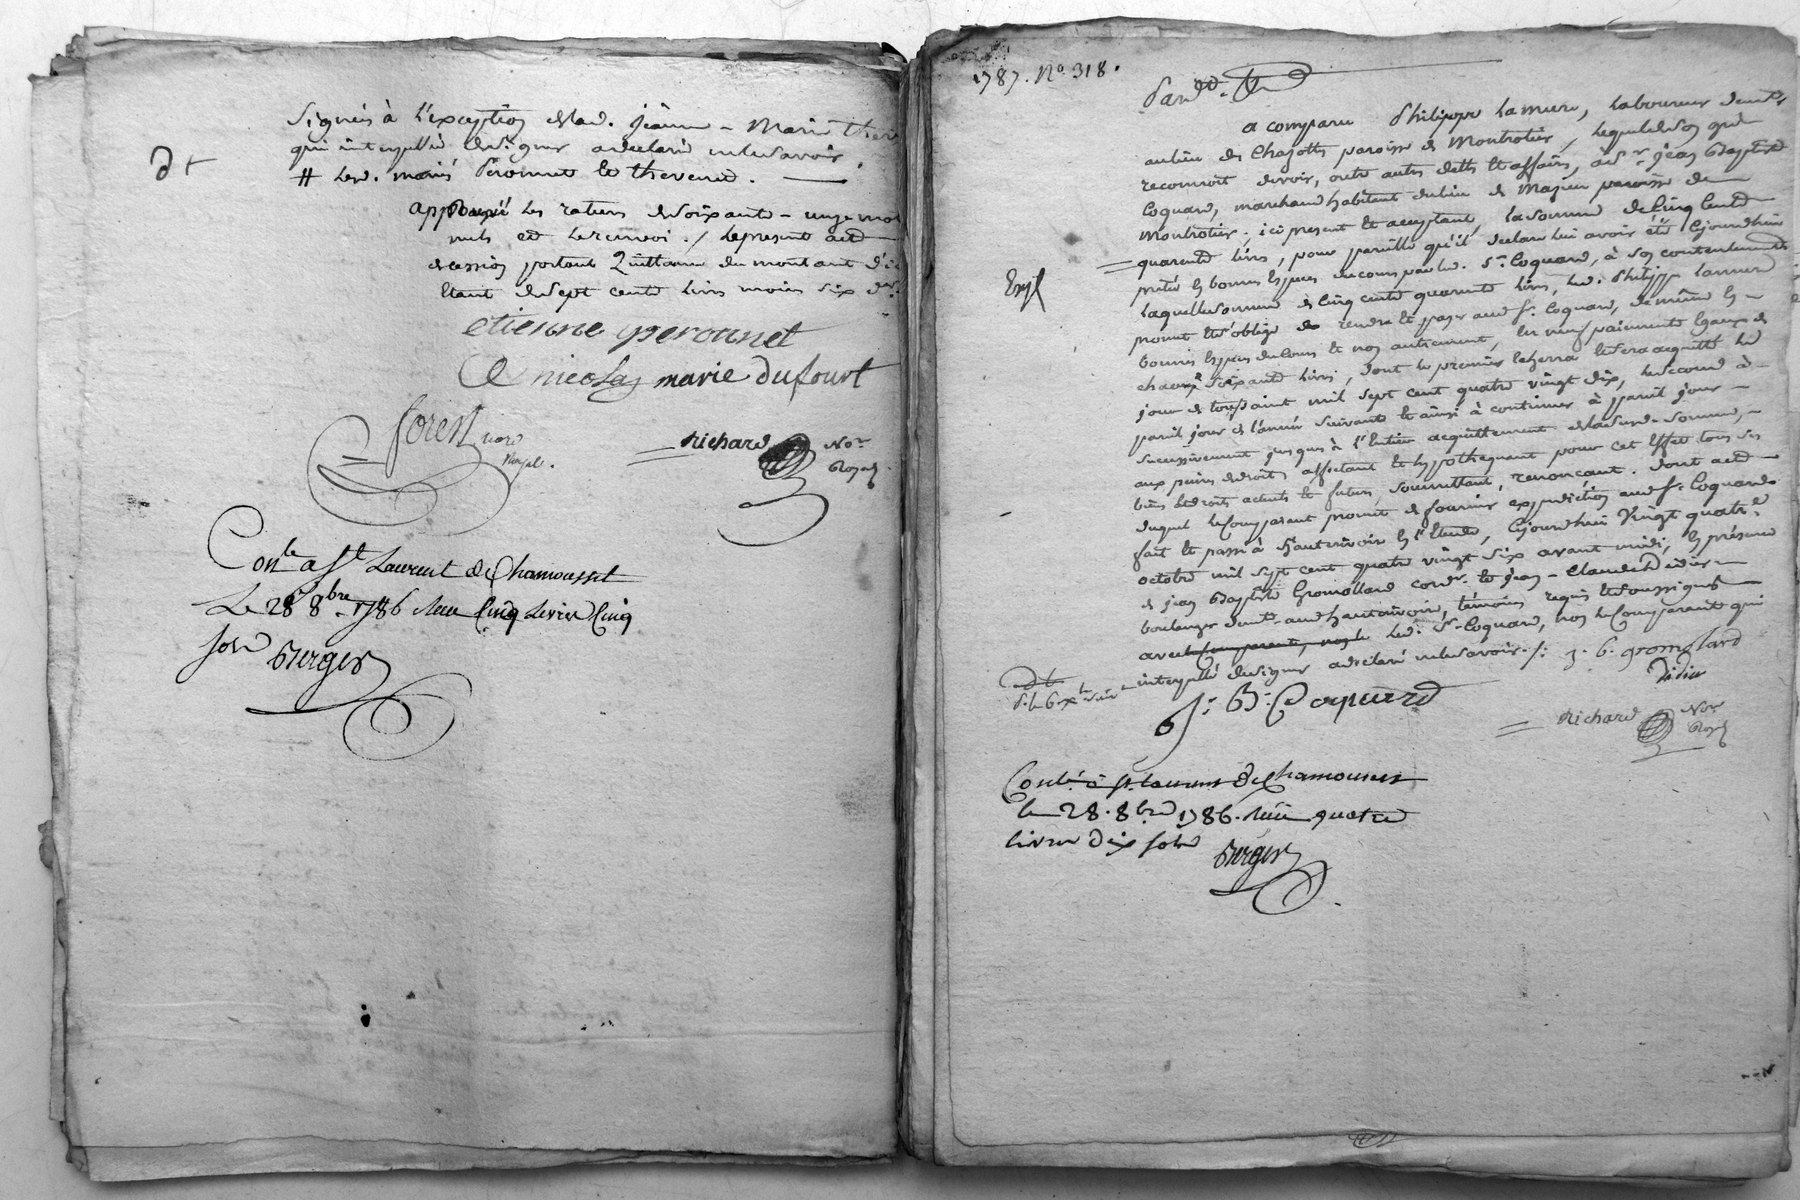 signés à l'exception de lad. jeanne - Marie thev
qui interpellée de signer a déclaré ne le savoir.
# lesd. mariés Peronnet et thevenet.
approuvé les ratures de soixante - onze mots
nuls et le renvoi. / le present acte
de cession portant Quittance du montant d'i
étant de sept cents livres moins six d
etienne peronnet
nicolas marie dufourt
forest
richard Not. Royal
Conlé a St Laurent de Chamousset
Le 28 8bre 1786 Reçu Cinq Livres Cinq
sols Berger
1787. No. 318.
Pardt.
a comparu Philippe Lamure, laboureur demt
au lieu de Chazotte paroisse de Montrotier, lequel de son gré
reconnoit devoir, outre autres dettes et affaires, à Sr. jean Baptiste
Coquard, marchand habitant du lieu de Magieu paroisse de
Montrotier, ici present et acceptant, la somme de Cinq Cents
quarente livres, pour pareille qu'il déclare lui avoir été cejourdhui
prêté en bonnes especes du cours par led. Sr. Coquard, à son contentement
laquelle somme de Cinq cents quarente livres, led. Philippe Lamure
promet et s'oblige de rendre et payer aud. Sr. Coquard, de même en
bonnes especes du cours et non autrement, en neuf paiements egaux de
chacun soixante livres, dont le premier echerra et sera acquitté le
jour de toussaint mil sept cent quatre vingt dix, le second à
pareil jour de l'année suivante et ainsi à continuer à pareil jour
successivement jusques à l'entier acquittement de lad. somme,
aux peines de droit, affectant et hypothequant pour cet effet tous ses
biens et droits actuels et futurs, soumettant, renonçant. Dont acte
duquel le comparant promet de fournir expedition aud. Sr. Coquard
fait et passé à hauterivoire en l'Etude, cejourdhui vingt quatre
octobre mil sept cent quatre vingt six avant midi, en présence
de jean Baptiste Gromollard cordr. et jean - Claude Didier
boulanger demt. aud. hauterivoire, témoins requis et soussignés
avec led. Sr. Coquard, non le Comparant qui
interpellé de signer a déclaré ne le savoir. /:
j. b. gromollard
Didier
J: B: Coquard
richard Not. Royal
Conlé à St. Laurent de Chamousset
le 28. 8bre 1786. Reçu quatre
livres dix sols Berger